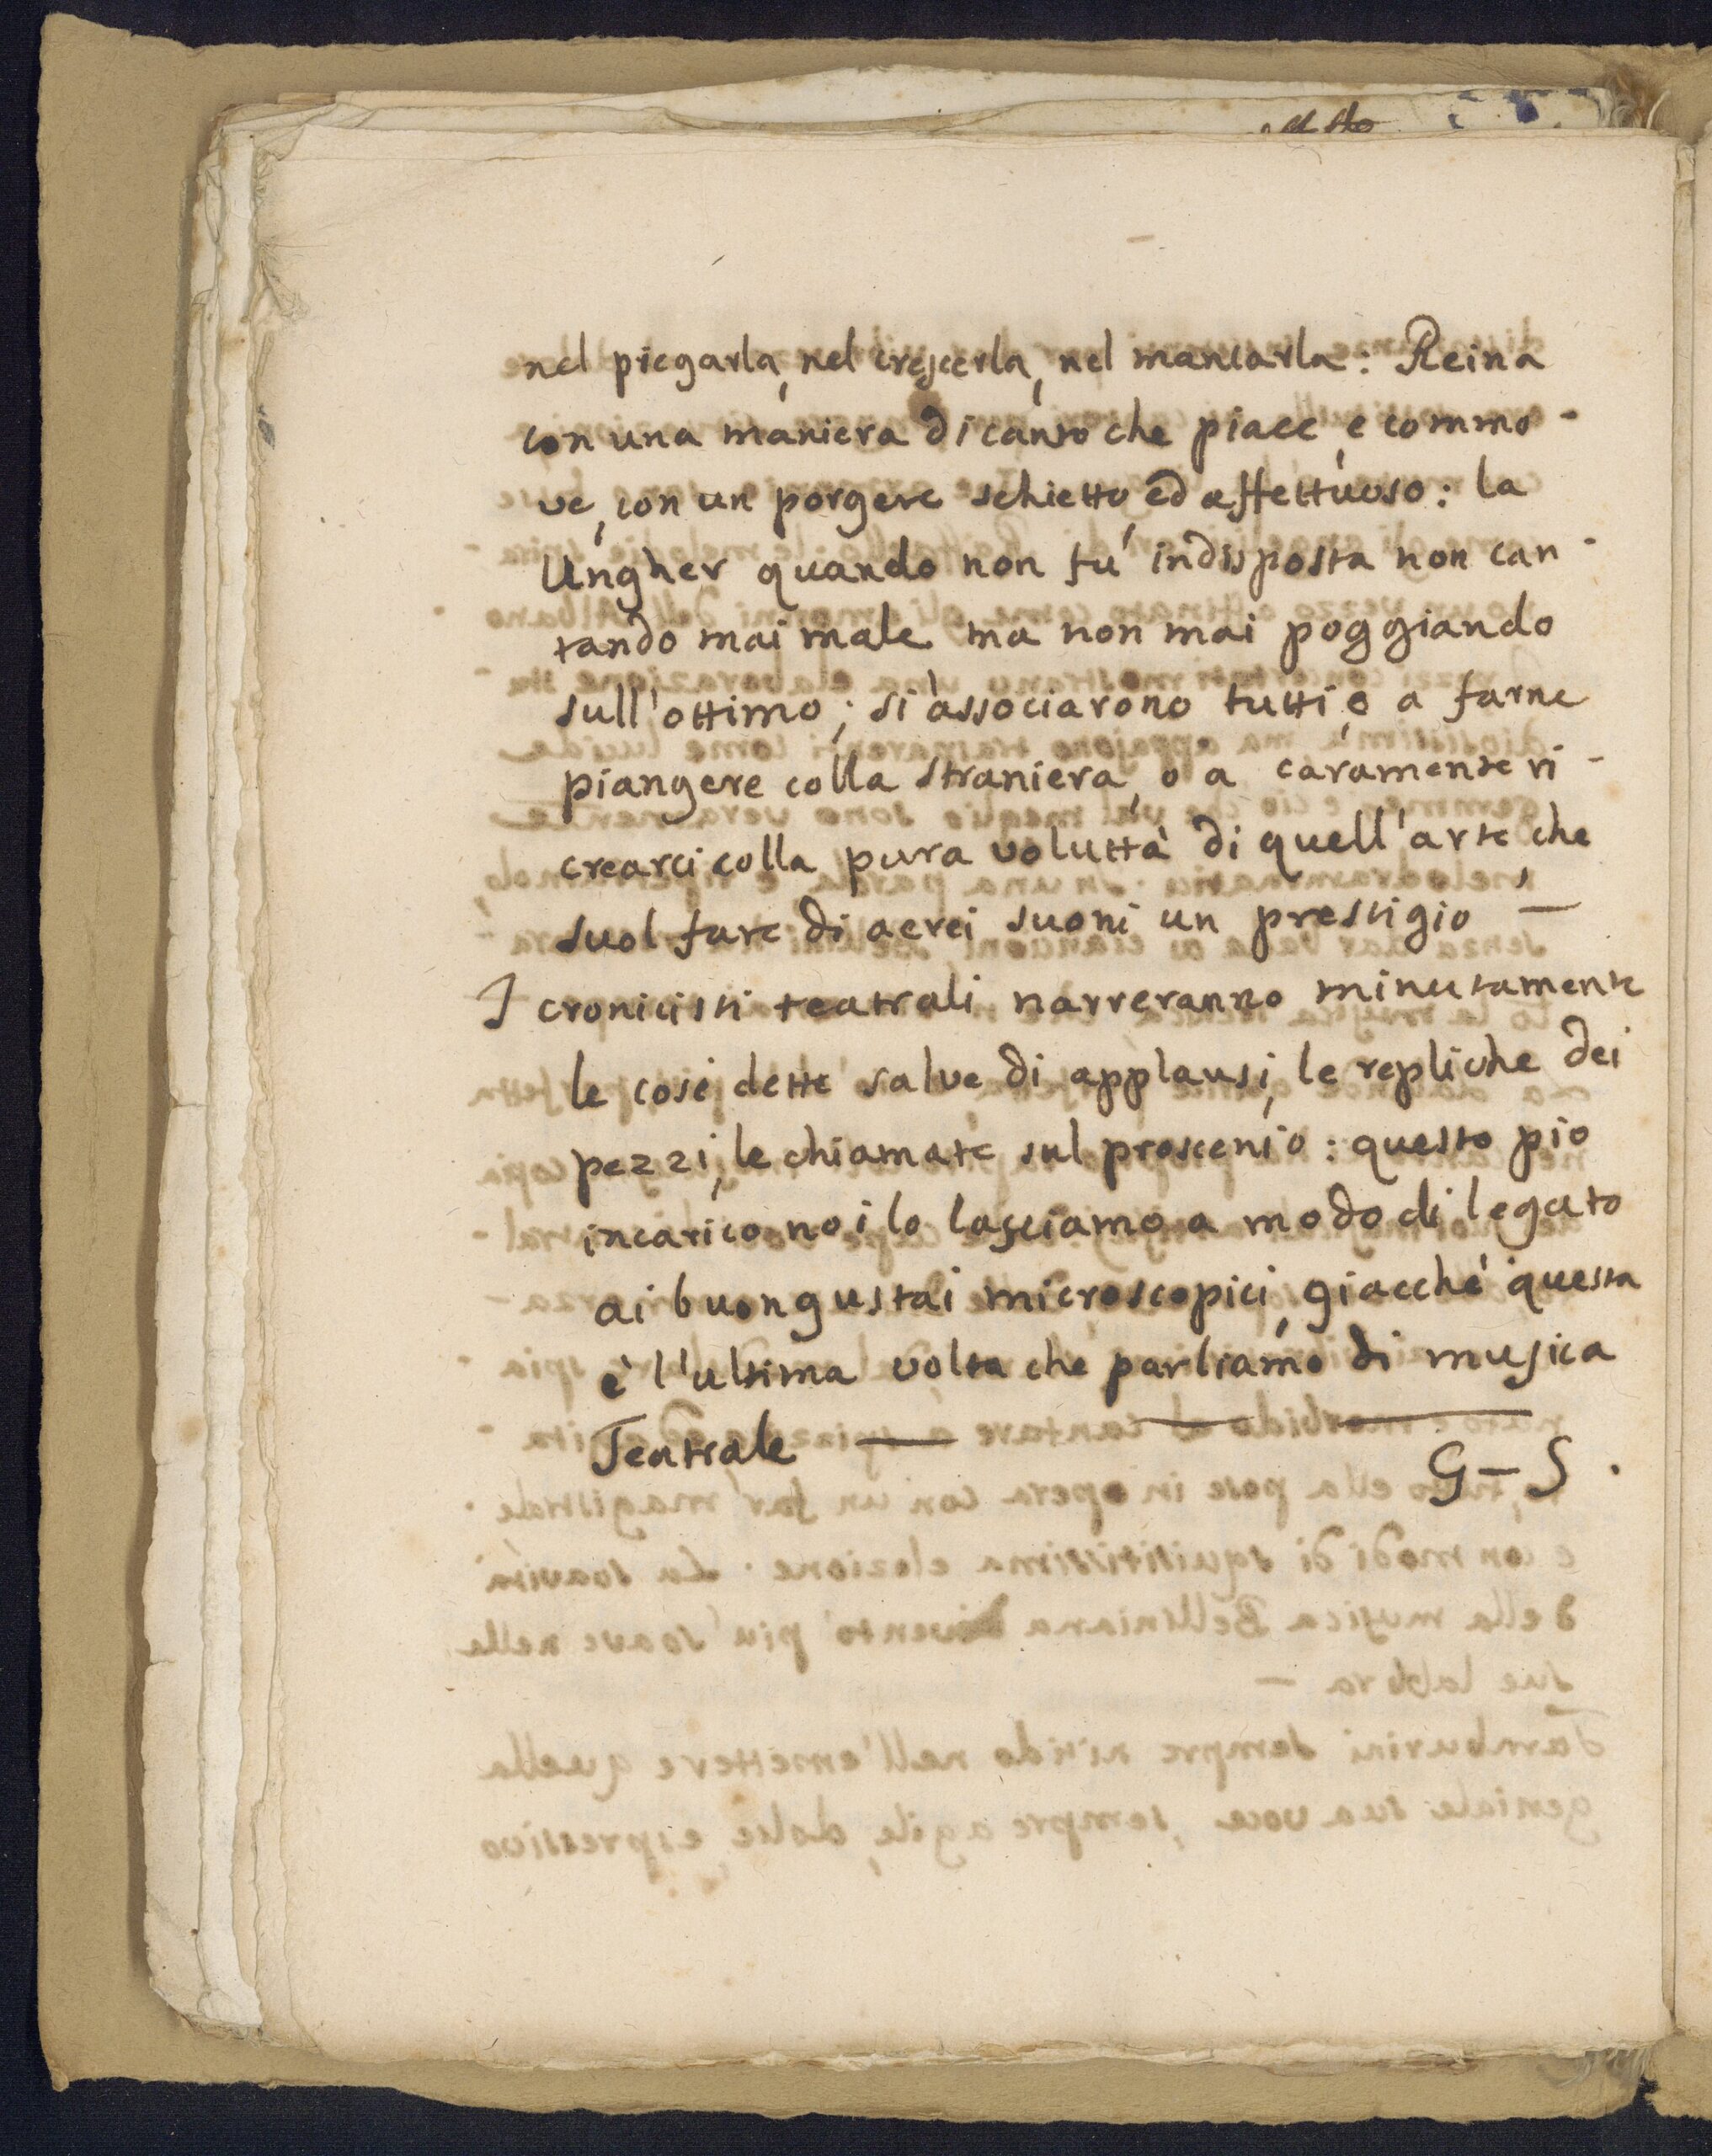 nel piegarla, nel crescerla, nel mancarla: Reina
con una maniera di canto che piace, e commo-
ve, con un porgere schietto ed affettuoso: la
Ungher quando non fu' indisposta non can-
tando mai male ma non mai poggiando
sull'ottimo; si associarono tutti, o a farne
piangere colla straniera, o a caramente ri-
crearci colla pura voluttà di quell'arte, che
suol fare di aerei suoni un prestigio —
I cronicisti teatrali narreranno minutamente
le così dette salve di applausi, le repliche dei
pezzi, le chiamate sul proscenio: questo pio
incarico noi lo lasciamo a modo di legato
ai buongustai microscopici, giacché questa
è l'ultima volta che parliamo di musica
Teatrale —
G–S.